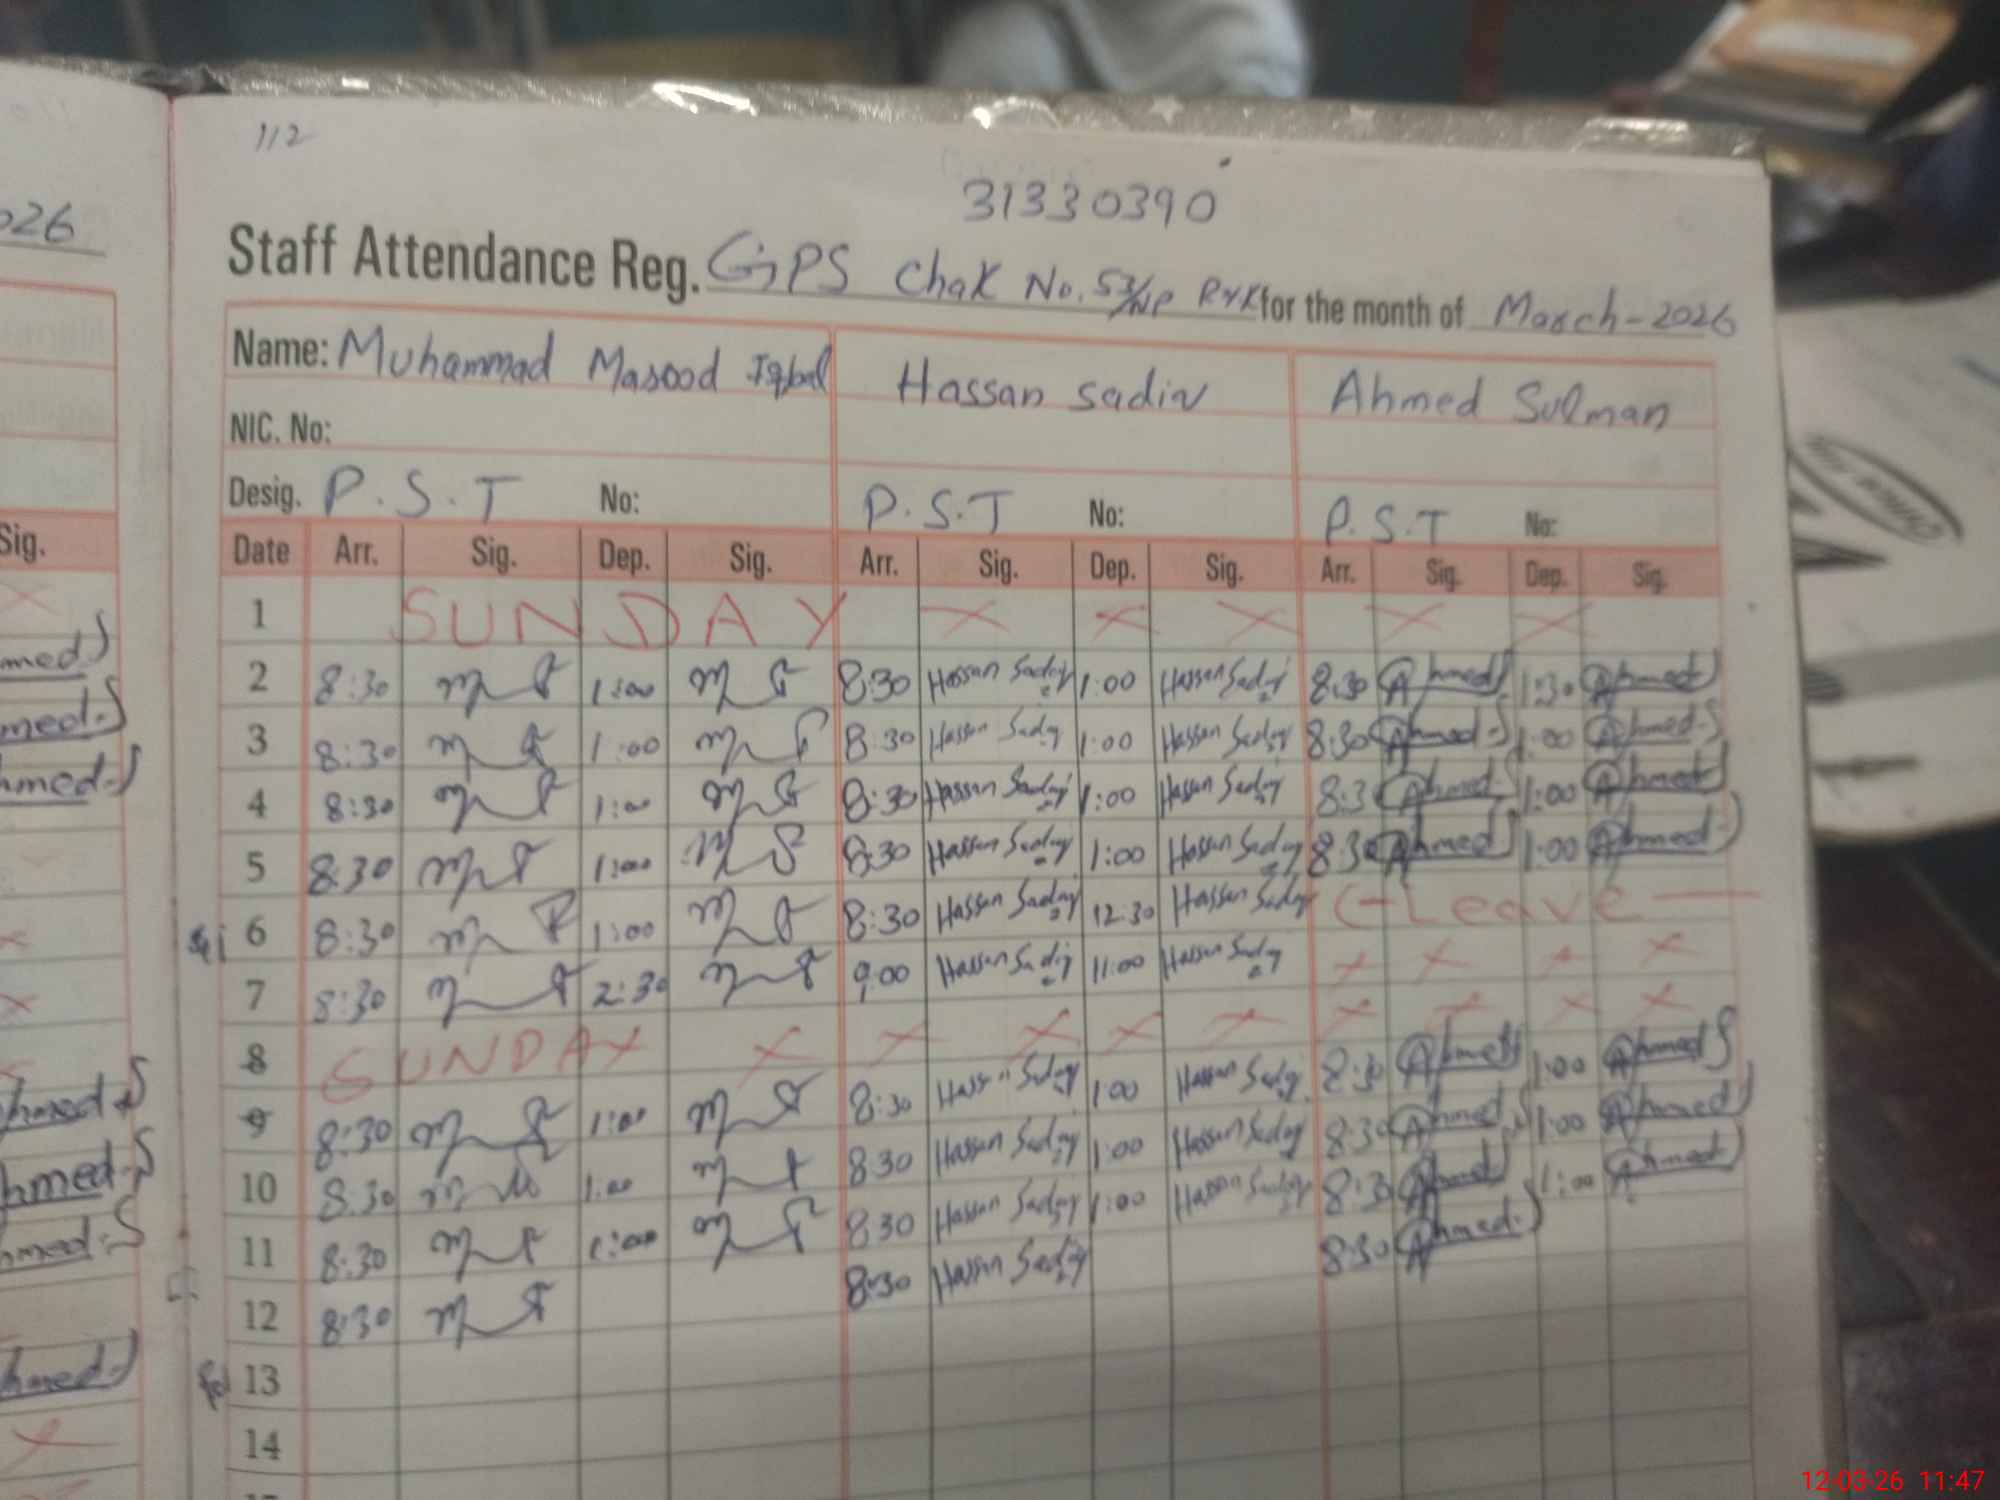 112
31330390
026
Staff Attendance Reg. GPS Chak No. 53/NP RYK for the month of March-2026
Name: Muhammad Masood Iqbal Hassan Sadiq Ahmed Sulman
NIC. No:
Desig. P.S.T No: P.S.T No: P.S.T No:
Sig. Date Arr. Sig. Dep. Sig. Arr. Sig. Dep. Sig. Arr. Sig. Dep. Sig.
1 SUNDAY x x x x x
2 8:30 1:00 8:30 Hassan Sadiq 1:00 Hassan Sadiq 8:30 Ahmed S 1:30 Ahmed S
3 8:30 1:00 8:30 Hassan Sadiq 1:00 Hassan Sadiq 8:30 Ahmed-S 1:00 Ahmed-S
4 8:30 1:00 8:30 Hassan Sadiq 1:00 Hassan Sadiq 8:3 Ahmed-S 1:00 Ahmed S
5 8:30 1:00 8:30 Hassan Sadiq 1:00 Hassan Sadiq 8:30 Ahmed S 1:00 Ahmed-S
6 8:30 1:00 8:30 Hassan Sadiq 12:30 Hassan Sadiq C-Leave
7 8:30 2:30 9:00 Hassan Sadiq 11:00 Hassan Sadiq x x x x
8 SUNDAY x x x x x x x x x
9 8:30 1:00 8:30 Hassan Sadiq 1:00 Hassan Sadiq 8:30 Ahmed S 1:00 Ahmed S
10 8:30 1:00 8:30 Hassan Sadiq 1:00 Hassan Sadiq 8:30 Ahmed S 1:00 Ahmed S
11 8:30 1:00 8:30 Hassan Sadiq 1:00 Hassan Sadiq 8:30 Ahmed S 1:00 Ahmed S
12 8:30 8:30 Hassan Sadiq 8:30 Ahmed-S
13
14
12-03-26 11:47